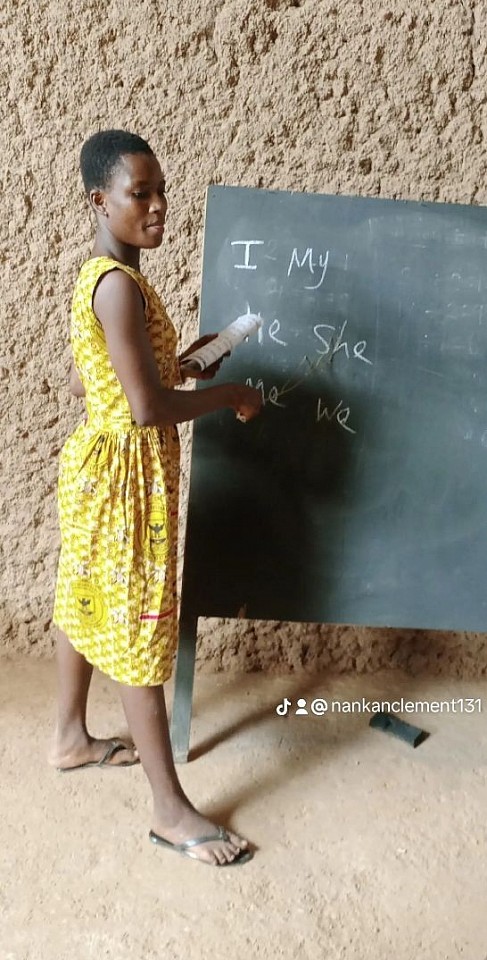 I My
He She
Me We
@nankanclement131